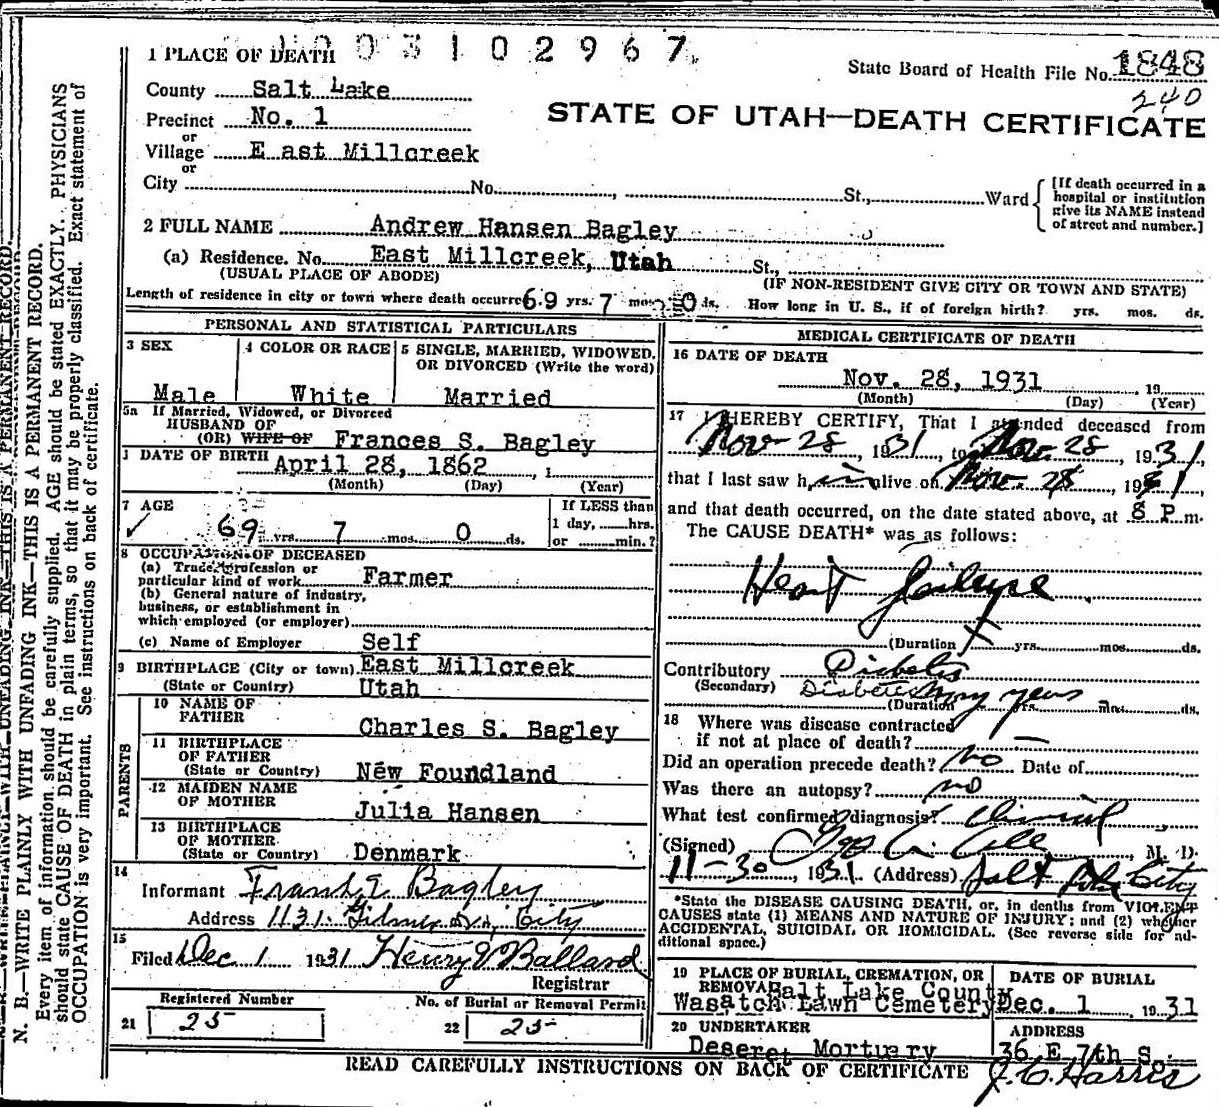 1003102967
1 PLACE OF DEATH
State Board of Health File No. 1848
240
County Salt Lake
STATE OF UTAH—DEATH CERTIFICATE
Precinct No. 1
or
Village East Millcreek
or
City No. , St., Ward
[If death occurred in a
hospital or institution
give its NAME instead
of street and number.]
2 FULL NAME Andrew Hansen Bagley
(a) Residence. No. East Millcreek, Utah St.,
(USUAL PLACE OF ABODE) (IF NON-RESIDENT GIVE CITY OR TOWN AND STATE)
Length of residence in city or town where death occurre 69 yrs. 7 mos. 0 ds. How long in U. S., if of foreign birth? yrs. mos. ds.
PERSONAL AND STATISTICAL PARTICULARS
3 SEX
Male
4 COLOR OR RACE
White
5 SINGLE, MARRIED, WIDOWED,
OR DIVORCED (Write the word)
Married
5a If Married, Widowed, or Divorced
HUSBAND OF
(OR) WIFE OF Frances S. Bagley
DATE OF BIRTH April 28, 1862 , 1
(Month) (Day) (Year)
7 AGE
69 yrs. 7 mos. 0 ds.
If LESS than
1 day, hrs.
or min.?
8 OCCUPATION OF DECEASED
(a) Trade, profession or
particular kind of work Farmer
(b) General nature of industry,
business, or establishment in
which employed (or employer)
(c) Name of Employer Self
9 BIRTHPLACE (City or town) East Millcreek
(State or Country) Utah
PARENTS
10 NAME OF
FATHER Charles S. Bagley
11 BIRTHPLACE
OF FATHER
(State or Country) New Foundland
12 MAIDEN NAME
OF MOTHER Julia Hansen
13 BIRTHPLACE
OF MOTHER
(State or Country) Denmark
14
Informant Bagley
Address 1131 Gilmer Dr., City
15
Filed Dec 1 1931 Henry E Ballard
Registrar
Registered Number No. of Burial or Removal Permit
21 25 22 25
MEDICAL CERTIFICATE OF DEATH
16 DATE OF DEATH
Nov. 28, 1931 , 19
(Month) (Day) (Year)
17 I HEREBY CERTIFY, That I attended deceased from
Nov 28, 1931, to Nov 28, 1931,
that I last saw him alive on Nov. 28, 1931,
and that death occurred, on the date stated above, at 8 P m.
The CAUSE DEATH* was as follows:
Heart failure
(Duration) yrs. mos. ds.
Contributory Diabetis
(Secondary) Diabetes many years
(Duration) yrs. mos. ds.
18 Where was disease contracted
if not at place of death? —
Did an operation precede death? No Date of
Was there an autopsy? no
What test confirmed diagnosis? clinical
(Signed) , M. D.
11-30, 1931. (Address) Salt Lake City
*State the DISEASE CAUSING DEATH, or, in deaths from VIOLENT
CAUSES state (1) MEANS AND NATURE OF INJURY; and (2) whether
ACCIDENTAL, SUICIDAL OR HOMICIDAL. (See reverse side for ad-
ditional space.)
19 PLACE OF BURIAL, CREMATION, OR
REMOVAL Salt Lake County
Wasatch Lawn Cemetery
DATE OF BURIAL
Dec. 1, 1931
20 UNDERTAKER
Deseret Mortuary
ADDRESS
36 E 7th S.
J. C. Harris
READ CAREFULLY INSTRUCTIONS ON BACK OF CERTIFICATE
N. B.—WRITE PLAINLY WITH UNFADING INK—THIS IS A PERMANENT RECORD.
Every item of information should be carefully supplied. AGE should be stated EXACTLY. PHYSICIANS
should state CAUSE OF DEATH in plain terms, so that it may be properly classified. Exact statement of
OCCUPATION is very important. See instructions on back of certificate.